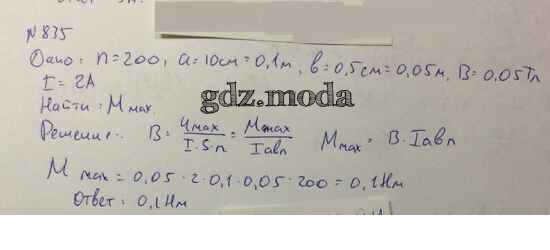 № 835
Дано: n=200, a=10см=0,1м, b=0,5см=0,05м, B=0,05Тл
I=2А
Найти: Mмах.
gdz.moda
Решение: B = Чмах/I·S·n = Mмах/Iabn Mмах = B·Iabn
M мах = 0,05·2·0,1·0,05·200=0,1Нм
Ответ: 0,1Нм